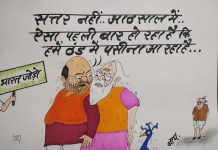 सत्तर नहीं..आठ साल में..
ऐसा पहली बार हो रहा है कि
हमें ठंड में पसीना आ रहा है...
भारत जोड़ो